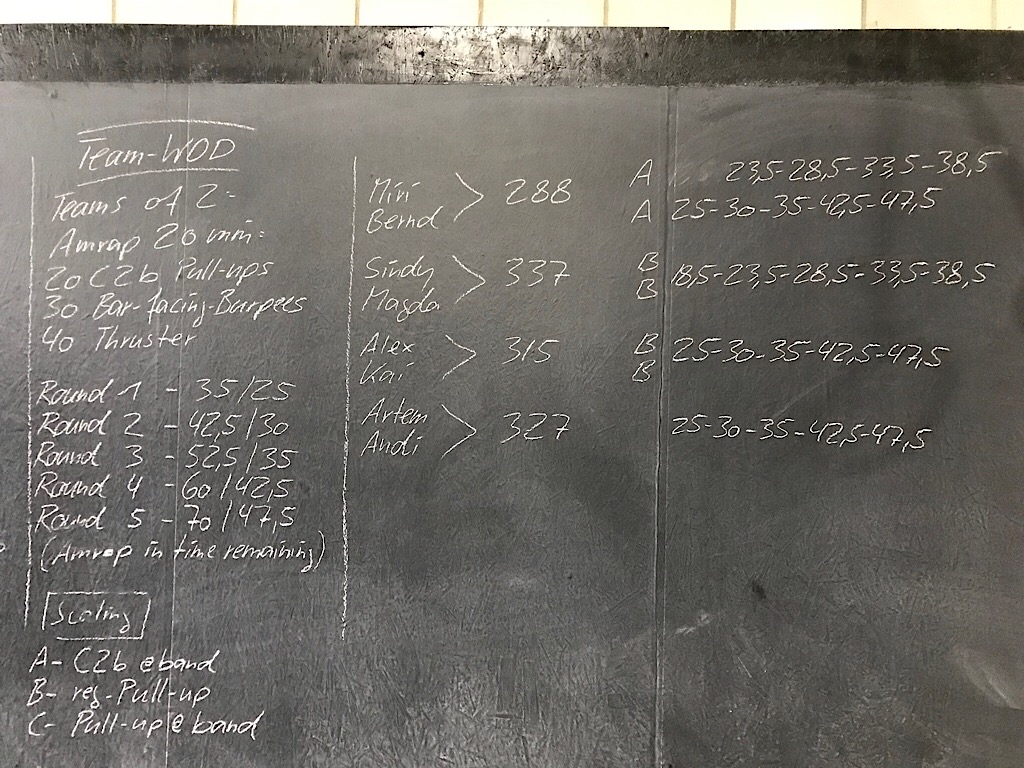 Team-WOD
Teams of 2:
Amrap 20 min:
20 C2b Pull-ups
30 Bar-facing-Burpees
40 Thruster
Round 1 - 35/25
Round 2 - 42,5/30
Round 3 - 52,5/35
Round 4 - 60/42,5
Round 5 - 70/47,5
(Amrap in time remaining)
Scaling
A- C2b @band
B- reg.-Pull-up
C- Pull-up@band
Miri
Bernd
> 288
A 23,5-28,5-33,5-38,5
A 25-30-35-42,5-47,5
Sindy
Magda
> 337
B
B 18,5-23,5-28,5-33,5-38,5
Alex
Kai
> 315
B
B 25-30-35-42,5-47,5
Artem
Andi
> 327
25-30-35-42,5-47,5